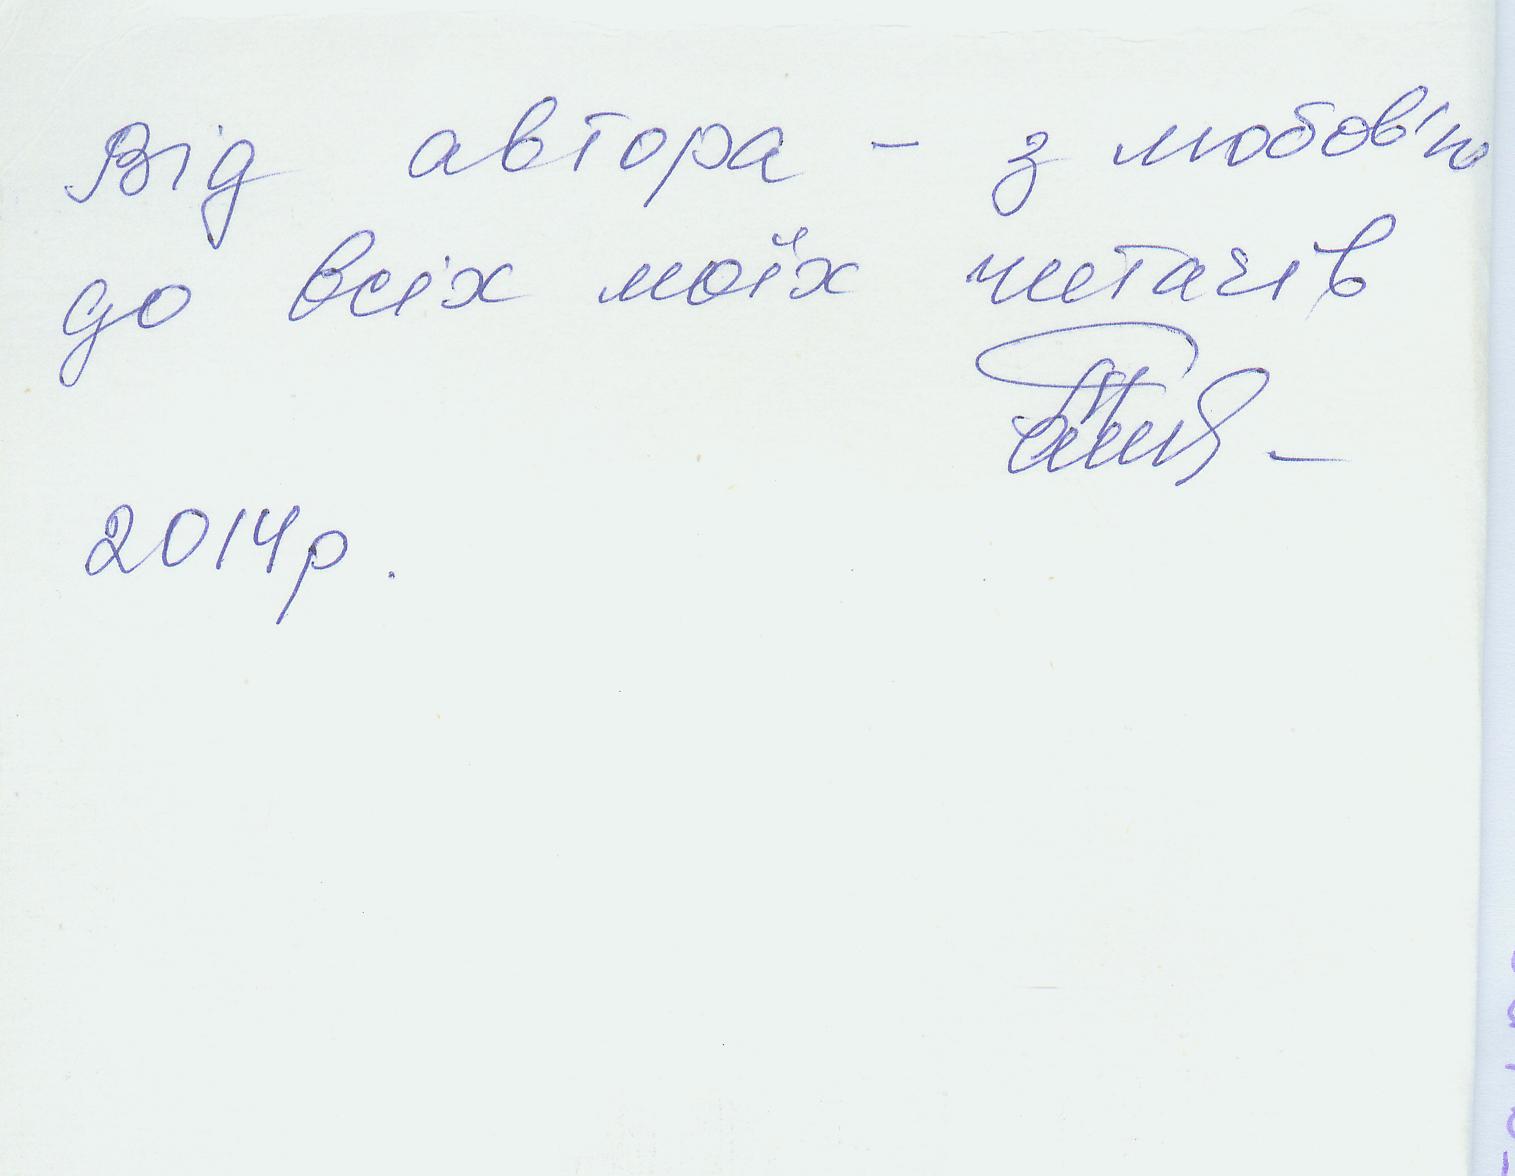 Від автора - з любов'ю
до всіх моїх читачів
2014р.